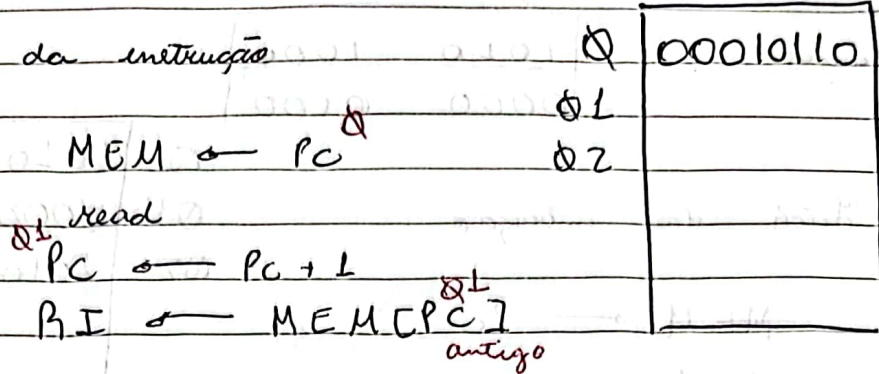 da instrução Ø 00010110
Ø1
MEM ← PC Ø Ø2
read
Ø1 PC ← PC + 1
RI ← MEM[PC] Ø1
antigo